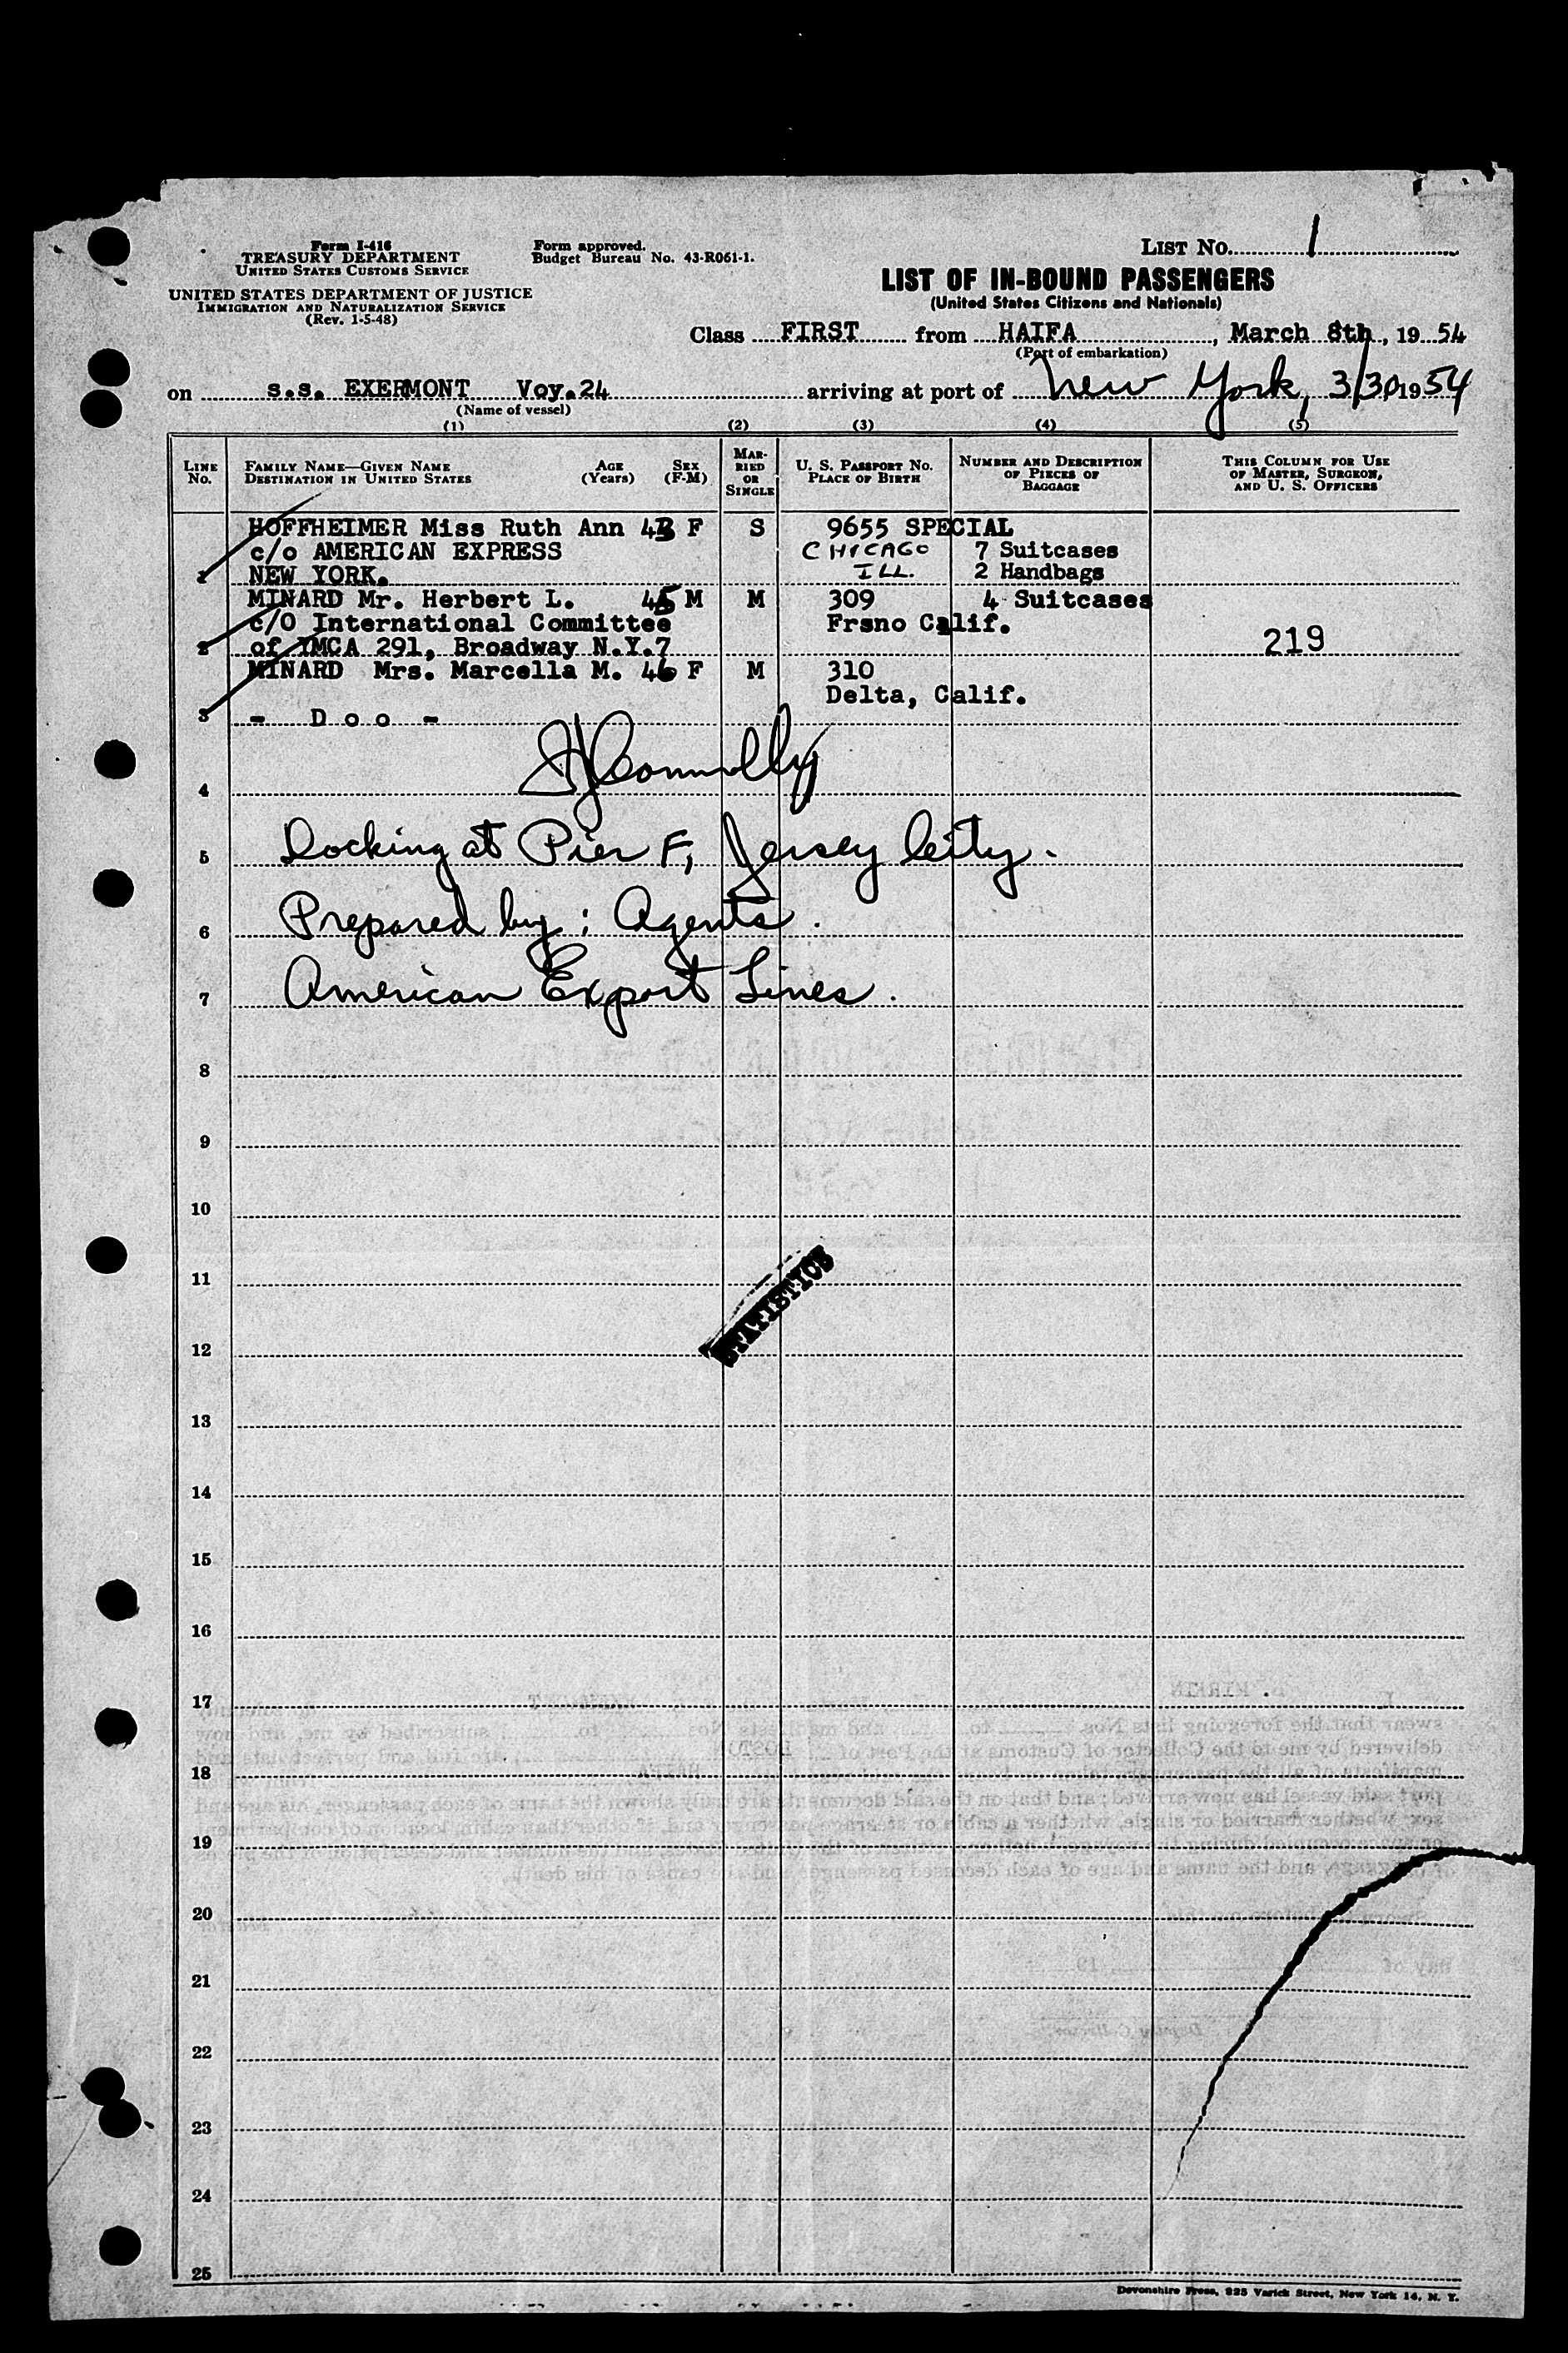 Form I-416
TREASURY DEPARTMENT
UNITED STATES CUSTOMS SERVICE
UNITED STATES DEPARTMENT OF JUSTICE
IMMIGRATION AND NATURALIZATION SERVICE
(Rev. 1-5-48)
Form approved.
Budget Bureau No. 43-R061-1.
LIST NO. 1
LIST OF IN-BOUND PASSENGERS
(United States Citizens and Nationals)
Class FIRST from HAIFA, March 8th, 19 54
(Port of embarkation)
on s.s. EXERMONT Voy.24 arriving at port of New York, 3/30 1954
(Name of vessel)
(1) (2) (3) (4) (5)
LINE NO.
FAMILY NAME—GIVEN NAME
DESTINATION IN UNITED STATES
AGE (Years)
SEX (F-M)
MARRIED OR SINGLE
U. S. PASSPORT NO.
PLACE OF BIRTH
NUMBER AND DESCRIPTION
OF PIECES OF
BAGGAGE
THIS COLUMN FOR USE
OF MASTER, SURGEON,
AND U. S. OFFICERS
HOFFHEIMER Miss Ruth Ann 43 F S 9655 SPECIAL
c/o AMERICAN EXPRESS CHICAGO 7 Suitcases
1 NEW YORK. ILL. 2 Handbags
MINARD Mr. Herbert L. 45 M M 309 4 Suitcases
c/O International Committee Frsno Calif.
2 of YMCA 291, Broadway N.Y.7 219
MINARD Mrs. Marcella M. 46 F M 310
Delta, Calif.
3 - D o o -
4
5 Docking at Pier F, Jersey City.
6 Prepared by: Agents.
7 American Export Lines.
8
9
10
11
STATISTICS
12
13
14
15
16
17
18
19
20
21
22
23
24
25
Devonshire Press, 225 Varick Street, New York 14, N. Y.